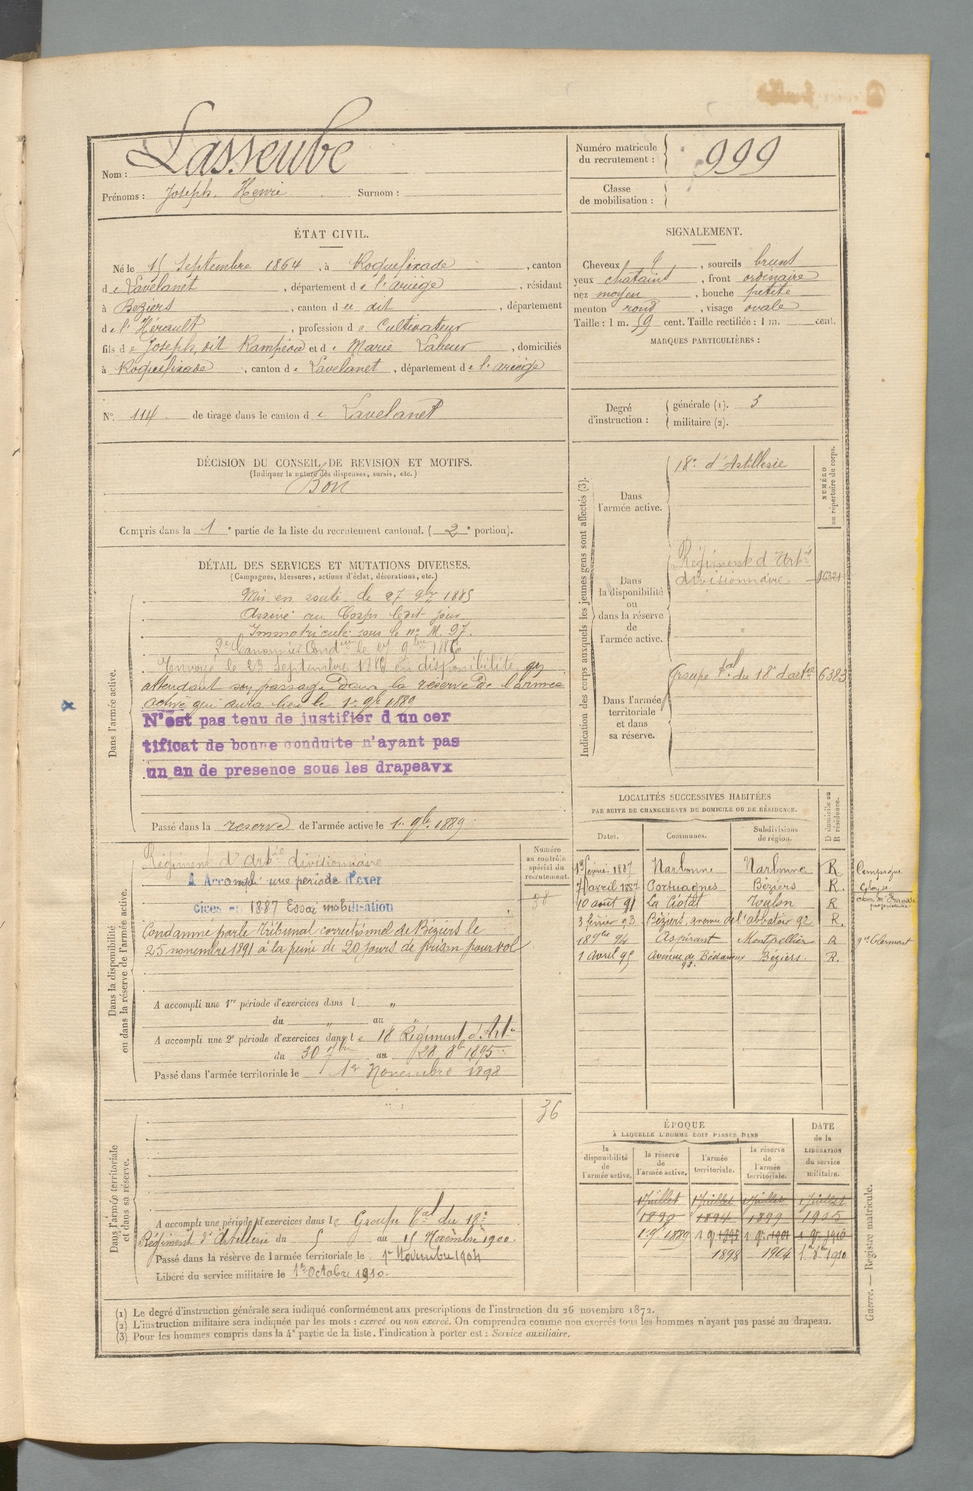 Nom : Lasseube
Prénoms : Joseph Henri Surnom :
Numéro matricule
du recrutement : 999
Classe
de mobilisation :
ÉTAT CIVIL.
Né le 15 Septembre 1864, à Roquefixade, canton
de Lavelanet, département de l'ariège, résidant
à Beziers, canton d u dit, département
de l'Hérault, profession de Cultivateur
fils de Joseph dit Rampéou et de Marie, domiciliés
à Roquefixade, canton de Lavelanet, département de l'ariège
N° 114 de tirage dans le canton de Lavelanet
SIGNALEMENT.
Cheveux, sourcils bruns
yeux chatains, front ordinaire
nez moyen, bouche petite
menton rond, visage ovale
Taille : 1 m. 59 cent. Taille rectifiée : 1 m. cent.
MARQUES PARTICULIÈRES :
Degré
d'instruction :
générale (1). 3
militaire (2).
DÉCISION DU CONSEIL DE REVISION ET MOTIFS.
(Indiquer la nature des dispenses, sursis, etc.)
Bon
Compris dans la 1e partie de la liste du recrutement cantonal. (2e portion).
DÉTAIL DES SERVICES ET MUTATIONS DIVERSES.
(Campagnes, blessures, actions d'éclat, décorations, etc.)
Dans l'armée active.
Mis en route le 27 9bre 1885
Arrivé au Corps ledit jour
Immatriculé sous le n° M. 97.
2e Canonnier Condeur le 27 9bre 1886
Envoyé le 23 Septembre 1886 en disponibilité en
attendant son passage dans la réserve de l'armée
active qui aura lieu le 1er 9bre 1889
N'est pas tenu de justifier d un cer
tificat de bonne conduite n'ayant pas
un an de presence sous les drapeavx
Passé dans la reserve de l'armée active le 1er 9bre 1889
Indication des corps auxquels les jeunes gens sont affectés (3).
NUMÉRO
au répertoire de corps.
Dans
l'armée active.
18e d'Artillerie
Dans
la disponibilité
ou
dans la réserve
de
l'armée active.
Régiment d'Artie
divisionnaire
Dans l'armée
territoriale
et dans
sa réserve.
Groupe tal du 18e d'artie 6383
Dans la disponibilité
ou dans la réserve de l'armée active.
Numéro
au contrôle
spécial du
recrutement.
Régiment d'Artie divisionnaire
A Accompli une periode d'exer
cices en 1887 Essai mobilisation
Condamné par le Tribunal correctionnel de Béziers le
25 novembre 1891 à la peine de 20 jours de prison pour vol
A accompli une 1re période d'exercices dans l „
du „ au „
A accompli une 2e période d'exercices dans le 18 Régiment d'Arte
du 30 7bre au 28 8bre 1895
Passé dans l'armée territoriale le 1er Novembre 1898
LOCALITÉS SUCCESSIVES HABITÉES
PAR SUITE DE CHANGEMENTS DE DOMICILE OU DE RÉSIDENCE.
Dates. Communes. Subdivisions
de région. D domicile ou
R résidence.
1er février 1887 Narbonne Narbonne R Campagne
7 avril 1887 Béziers R.
10 août 91 La Ciotat Toulon R
3 février 93 Béziers, avenue de l'abbatoir 92 R.
18 9bre 94 Aspirant Montpellier R
1 avril 95 Avenue de Bédarieux Béziers R.
Dans l'armée territoriale
et dans sa réserve.
36
A accompli une période d'exercices dans le Groupe tal du 18e
Régiment d'Artillerie du 5 au 15 Novembre 1900
Passé dans la réserve de l'armée territoriale le 1er Novembre 1904
Libéré du service militaire le 1er Octobre 1910.
ÉPOQUE
À LAQUELLE L'HOMME DOIT PASSER DANS
DATE
de la
LIBÉRATION
du service
militaire.
la
disponibilité
de
l'armée active.
la réserve
de
l'armée active.
l'armée
territoriale.
la réserve
de
l'armée
territoriale.
1 Juillet 1 Juillet 1 Juillet 1 Juillet
1890 1894 1899 1905
1898 1904 1er 8bre 1910
(1) Le degré d'instruction générale sera indiqué conformément aux prescriptions de l'instruction du 26 novembre 1872.
(2) L'instruction militaire sera indiquée par les mots : exercé ou non exercé. On comprendra comme non exercés tous les hommes n'ayant pas passé au drapeau.
(3) Pour les hommes compris dans la 4e partie de la liste, l'indication à porter est : Service auxiliaire.
Guerre. — Registre matricule.